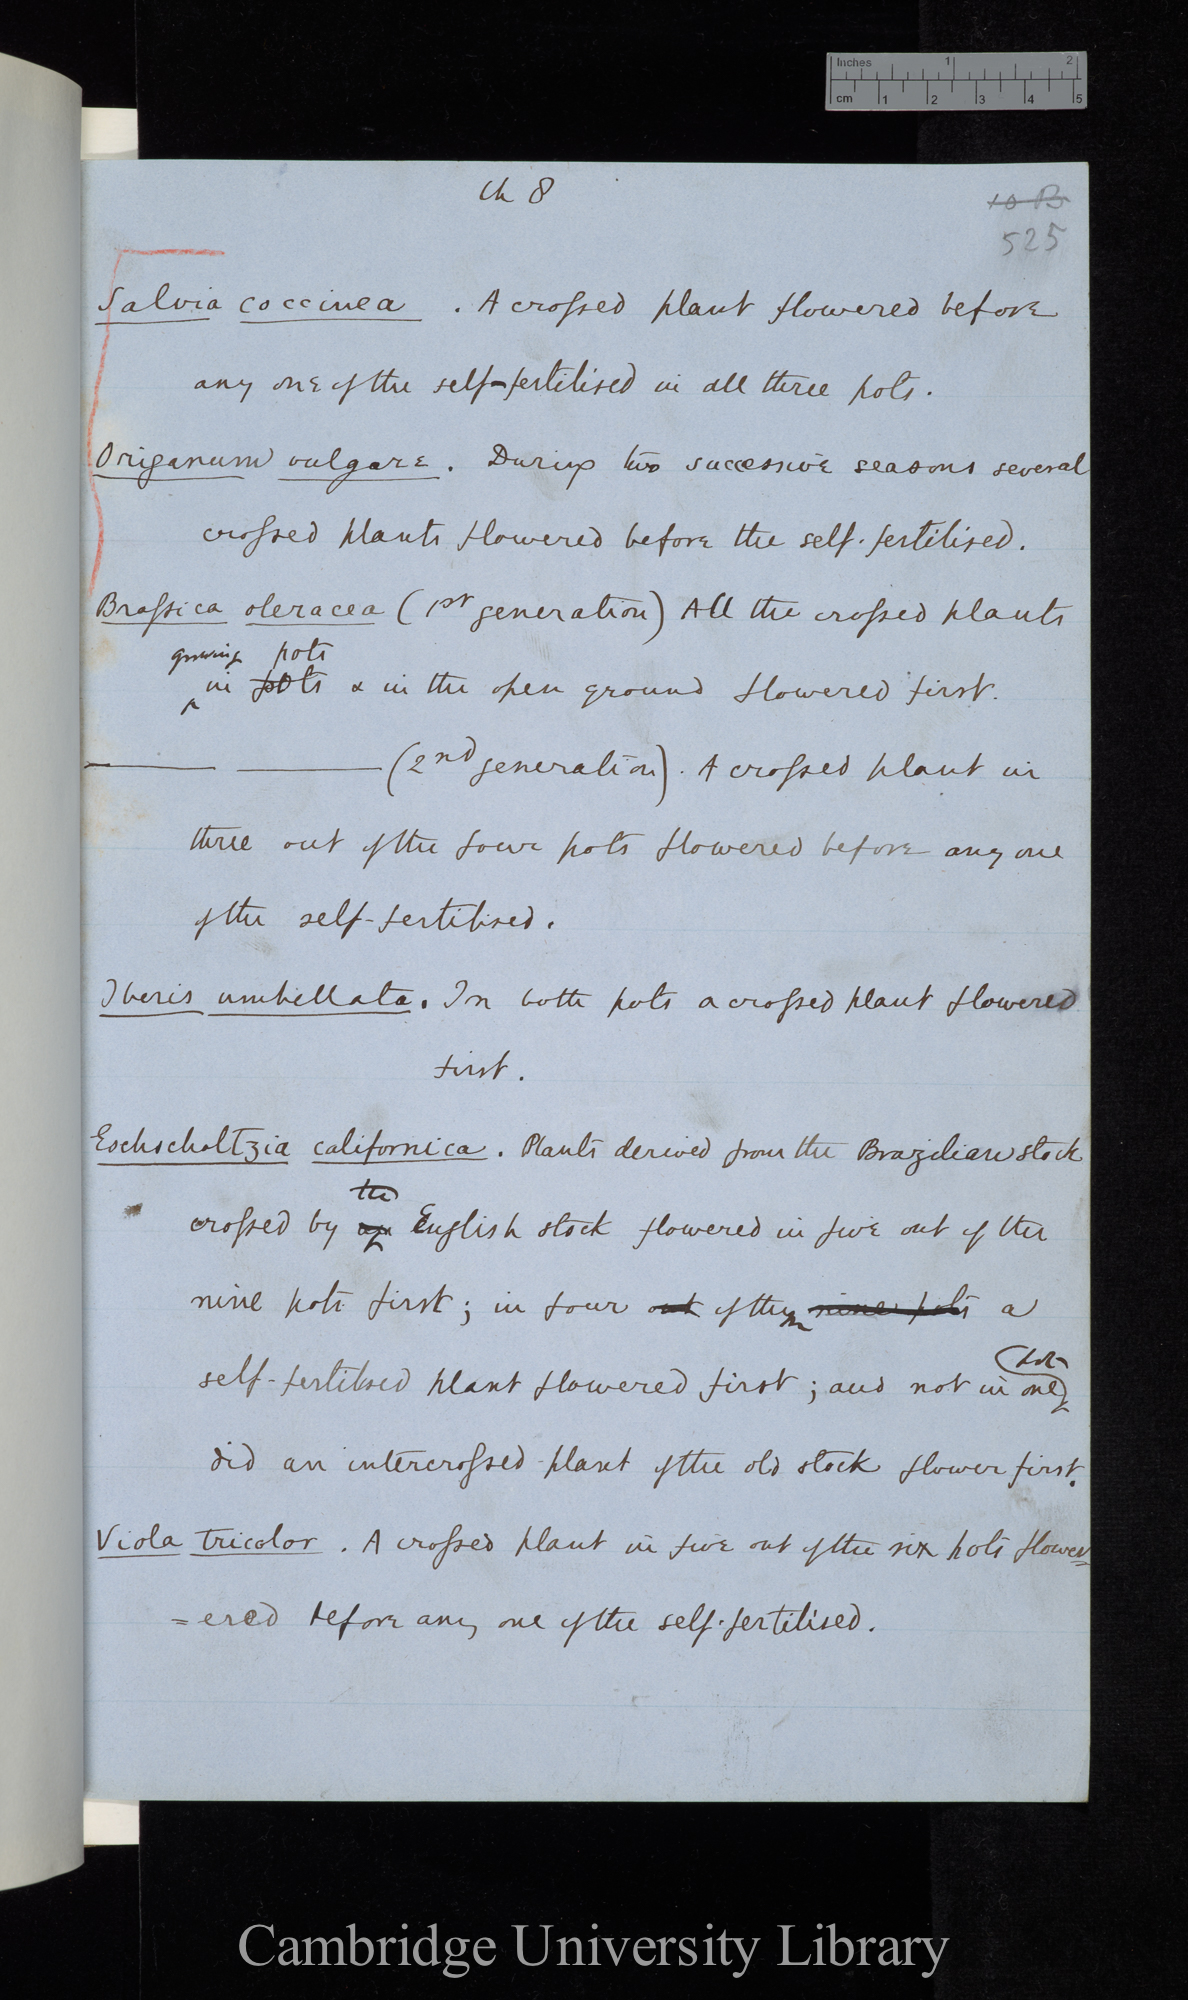 Inches 1 2
cm 1 2 3 4 5
Ch 8
10 B
525
Salvia coccinea . A crossed plant flowered before
any one of the self-fertilised in all three pots.
Origanum vulgare. During two successive seasons several
crossed plants flowered before the self-fertilised.
Brassica oleracea (1st generation) All the crossed plants
growing pots
in pots & in the open ground flowered first.
——— ——— (2nd generation). A crossed plant in
three out of the four pots flowered before any one
of the self-fertilised.
Iberis umbellata. In both pots a crossed plant flowered
first.
Eschscholtzia californica. Plants derived from the Brazilian stock
the
crossed by English stock flowered in five out of the
nine pots first; in four out of them nine pots a
pot
self-fertilised plant flowered first; and not in one
did an intercrossed plant of the old stock flower first.
Viola tricolor. A crossed plant in five out of the six pots flower
=ered before any one of the self-fertilised.
Cambridge University Library